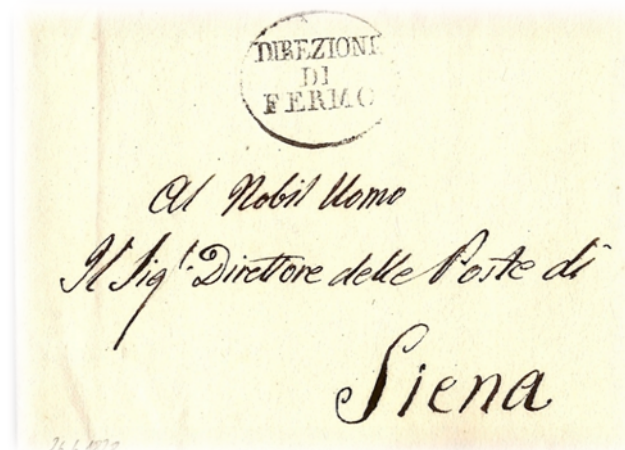 DIREZIONE
DI
FERMO
Al Nobil Uomo
Il Sig.r Direttore delle Poste di
Siena